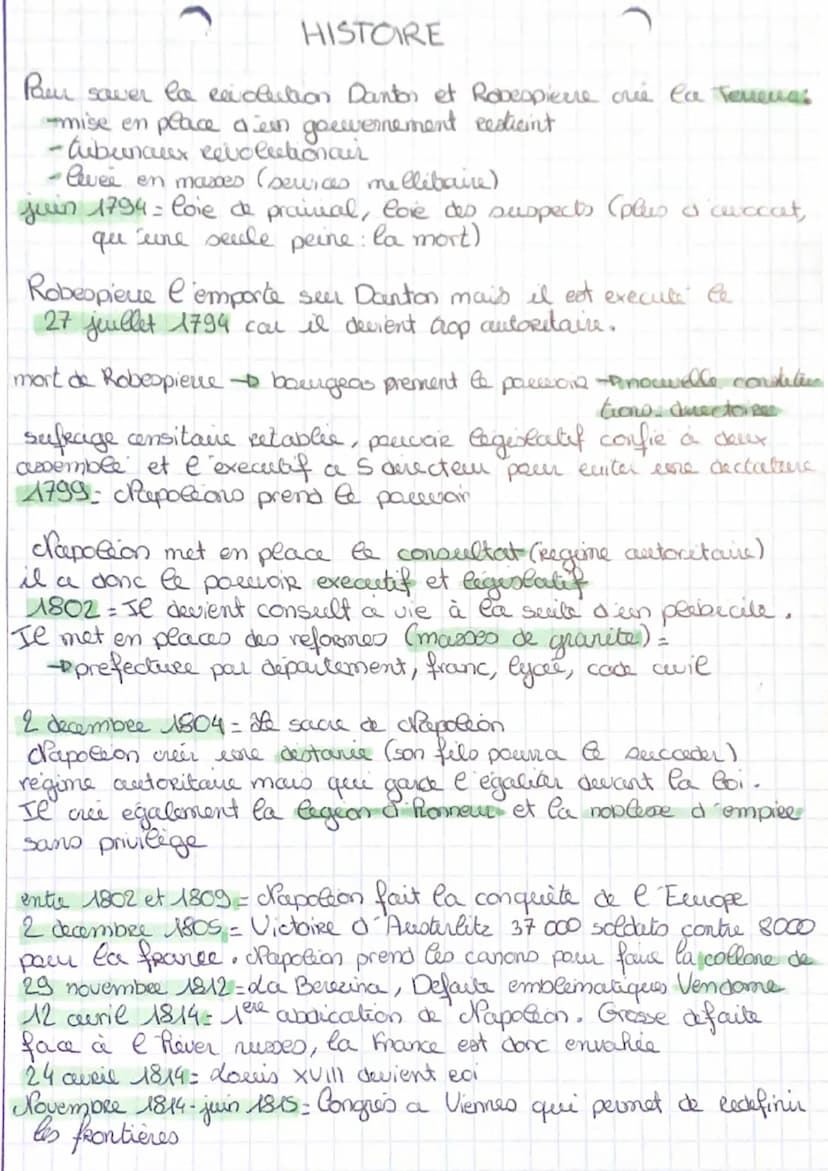 HISTOIRE
Pour sauver la révolution Danton et Robespierre crée la Terreur:
-mise en place d'un gouvernement restreint
- tribunaux revolutionair
- levée en masses (services millitaire)
juin 1794 = loie de prairial, loie des suspects (plus d'avocat,
qu'une seule peine : la mort)
Robespierre l'emporte sur Danton mais il est executé le
27 juillet 1794 car il devient trop autoritaire.
mort de Robespierre → bourgeois prennent le pouvoir → nouvelle constitu
tions: directoires
sufrage censitaire retablie, pouvoir legislatif confié à deux
assemblé et l'executif a 5 directeur pour eviter une dictature
1799= Napoléons prend le pouvoir
Napoléon met en place le consultat (regime autoritaire)
il a donc le pouvoir executif et legislatif
1802 = Il devient consult a vie à la suite d'un plebicite.
Il met en places des reformes (masses de granite) =
→ prefecture par département, franc, lycée, code civil
2 decembre 1804 = Le sacre de Napoléon
Napoleon créer une destanie (son fils pourra le succeder)
régime autoritaire mais qui garde l'égaliter devant la loi.
Il crée egalement la legion d'honneur et la noblesse d'empire
sans privilège
entre 1802 et 1809 = Napoléon fait la conquète de l'Europe
2 decembre 1805 = Victoire d'Austerlitz 37 000 soldats contre 8000
pour la france. Napoléon prend les canons pour faire la collone de
29 novembre 1812 = La Berezina, Defaite emblematiques Vendome
12 avril 1814 = 1ère abdication de Napoléon. Grosse defaite
face à l'hiver russes, la France est donc envahie
24 avril 1814 = Louis XVIII devient roi
Novembre 1814 - juin 1815 = Congrés a Viennes qui permet de redefinir
les frontières